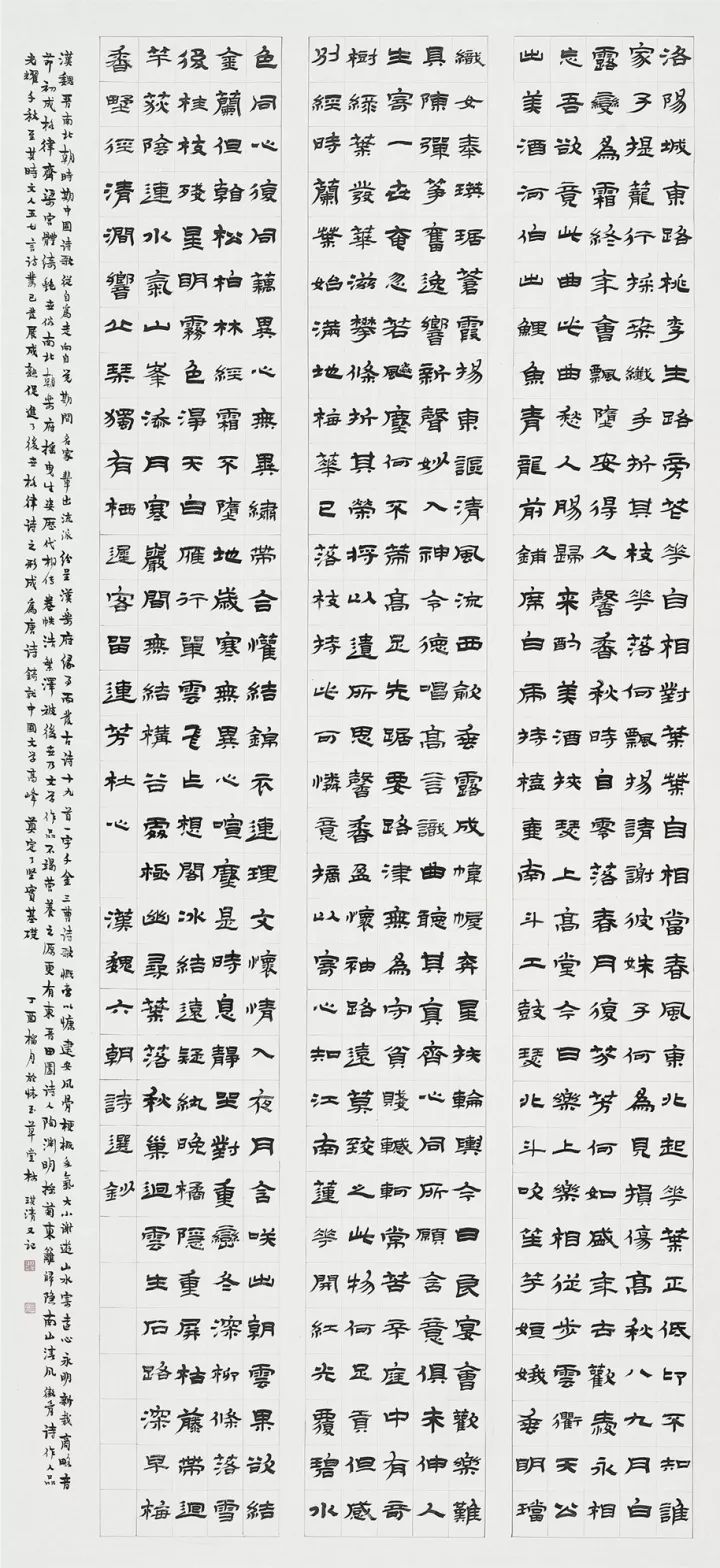 洛陽城東路桃李生路旁花華自相對葉葉自相當春風東北起華葉正低卬不知誰
家子提籠行採桑纖手折其枝華落何飄揚請謝彼姝子何為見損傷高秋八九月白
露變為霜終年會飄墮安得久馨香秋時自零落春月復芬芳何如盛年去歡愛永相
忘吾欲竟此曲此曲愁人腸歸來酌美酒挾瑟上高堂今日樂上樂相從步雲衢天公
出美酒河伯出鯉魚青龍前鋪席白虎持榼壺南斗工鼓瑟北斗吹笙竽姮娥垂明璫
織女奉瑛琚蒼霞揚東謳清風流西歈垂露成幃幄奔星扶輪輿今日良宴會歡樂難
具陳彈箏奮逸響新聲妙入神令德唱高言識曲聽其真齊心同所願含意俱未伸人
生寄一世奄忽若飆塵何不策高足先踞要路津無為守貧賤轗軻常苦辛庭中有奇
樹綠葉發華滋攀條折其榮將以遺所思馨香盈懷袖路遠莫致之此物何足貢但感
別經時蘭葉始滿地梅華已落枝持此可憐意摘以寄心知江南蓮華開紅光覆碧水
色同心復同藕異心無異繡帶合懽結錦衣連理文懷情入夜月含咲出朝雲果欲結
金蘭但翰松柏林經霜不墮地歲寒無異心喧塵是時息靜坐對重巒冬深柳條落雪
後桂枝殘星明霧色淨天白雁行單雲飛乍想閣冰結遠疑紈晚橘隱重屏枯藤帶迴
竿荻陰連水氣山峯添月寒巖間無結構谷處極幽尋葉落秋巢迥雲生石路深早梅
香野徑清澗響止琴獨有栖遲客留連芳杜心 漢魏六朝詩選鈔
漢魏晉南北朝時期中國詩歌從自為走向自覺期間名家輩出流派紛呈漢樂府緣事而發古詩十九首一字千金三曹詩歌慨當以慷建安風骨梗概多氣大小謝遊山水寄遠心永明新裁商略音
節初成格律齊梁宮體綺艷世俗南北朝樂府搖曳生姿歷代相傳卷帙浩繁澤被後世乃文學作品不竭營養之源更有東晉田園詩人陶淵明採菊東籬歸隱南山淳風徽骨詩作人品
光耀千秋至其時文人五七言詩業已發展成熟促進了後世格律詩之形成為唐詩鑄就中國文學高峰奠定了堅實基礎 丁酉榴月於懷玉草堂 琪清又記